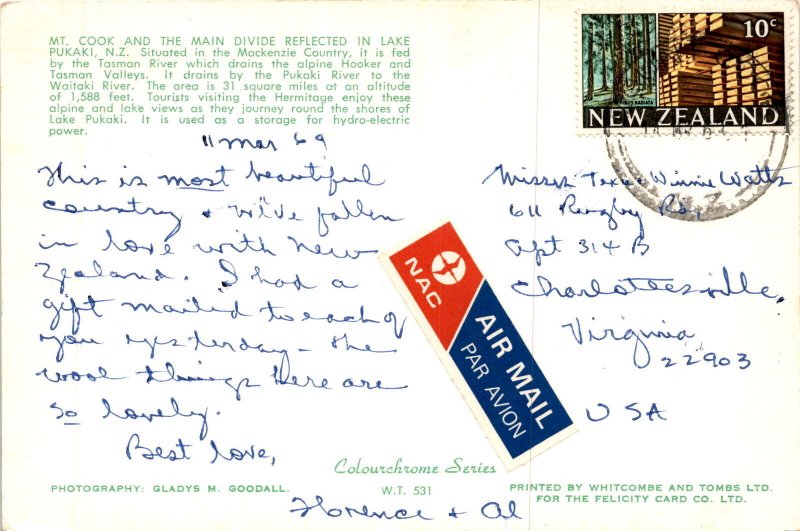 MT. COOK AND THE MAIN DIVIDE REFLECTED IN LAKE
PUKAKI, N.Z. Situated in the Mackenzie Country, it is fed
by the Tasman River which drains the alpine Hooker and
Tasman Valleys. It drains by the Pukaki River to the
Waitaki River. The area is 31 square miles at an altitude
of 1,588 feet. Tourists visiting the Hermitage enjoy these
alpine and lake views as they journey round the shores of
Lake Pukaki. It is used as a storage for hydro-electric
power.
11 Mar 69
This is most beautiful
country & we've fallen
in love with New
Zealand. I had a
gift mailed to each of
you yesterday - the
wool things here are
so lovely.
Best love,
Florence & Al
NEW ZEALAND 10c
PINUS RADIATA
NEW ZEALAND
Misses & Winnie Watts
611 Rugby Rd,
Apt 314 B
Charlottesville,
Virginia
22903
USA
NAC
AIR MAIL
PAR AVION
Colourchrome Series
W.T. 531
PHOTOGRAPHY: GLADYS M. GOODALL.
PRINTED BY WHITCOMBE AND TOMBS LTD.
FOR THE FELICITY CARD CO. LTD.